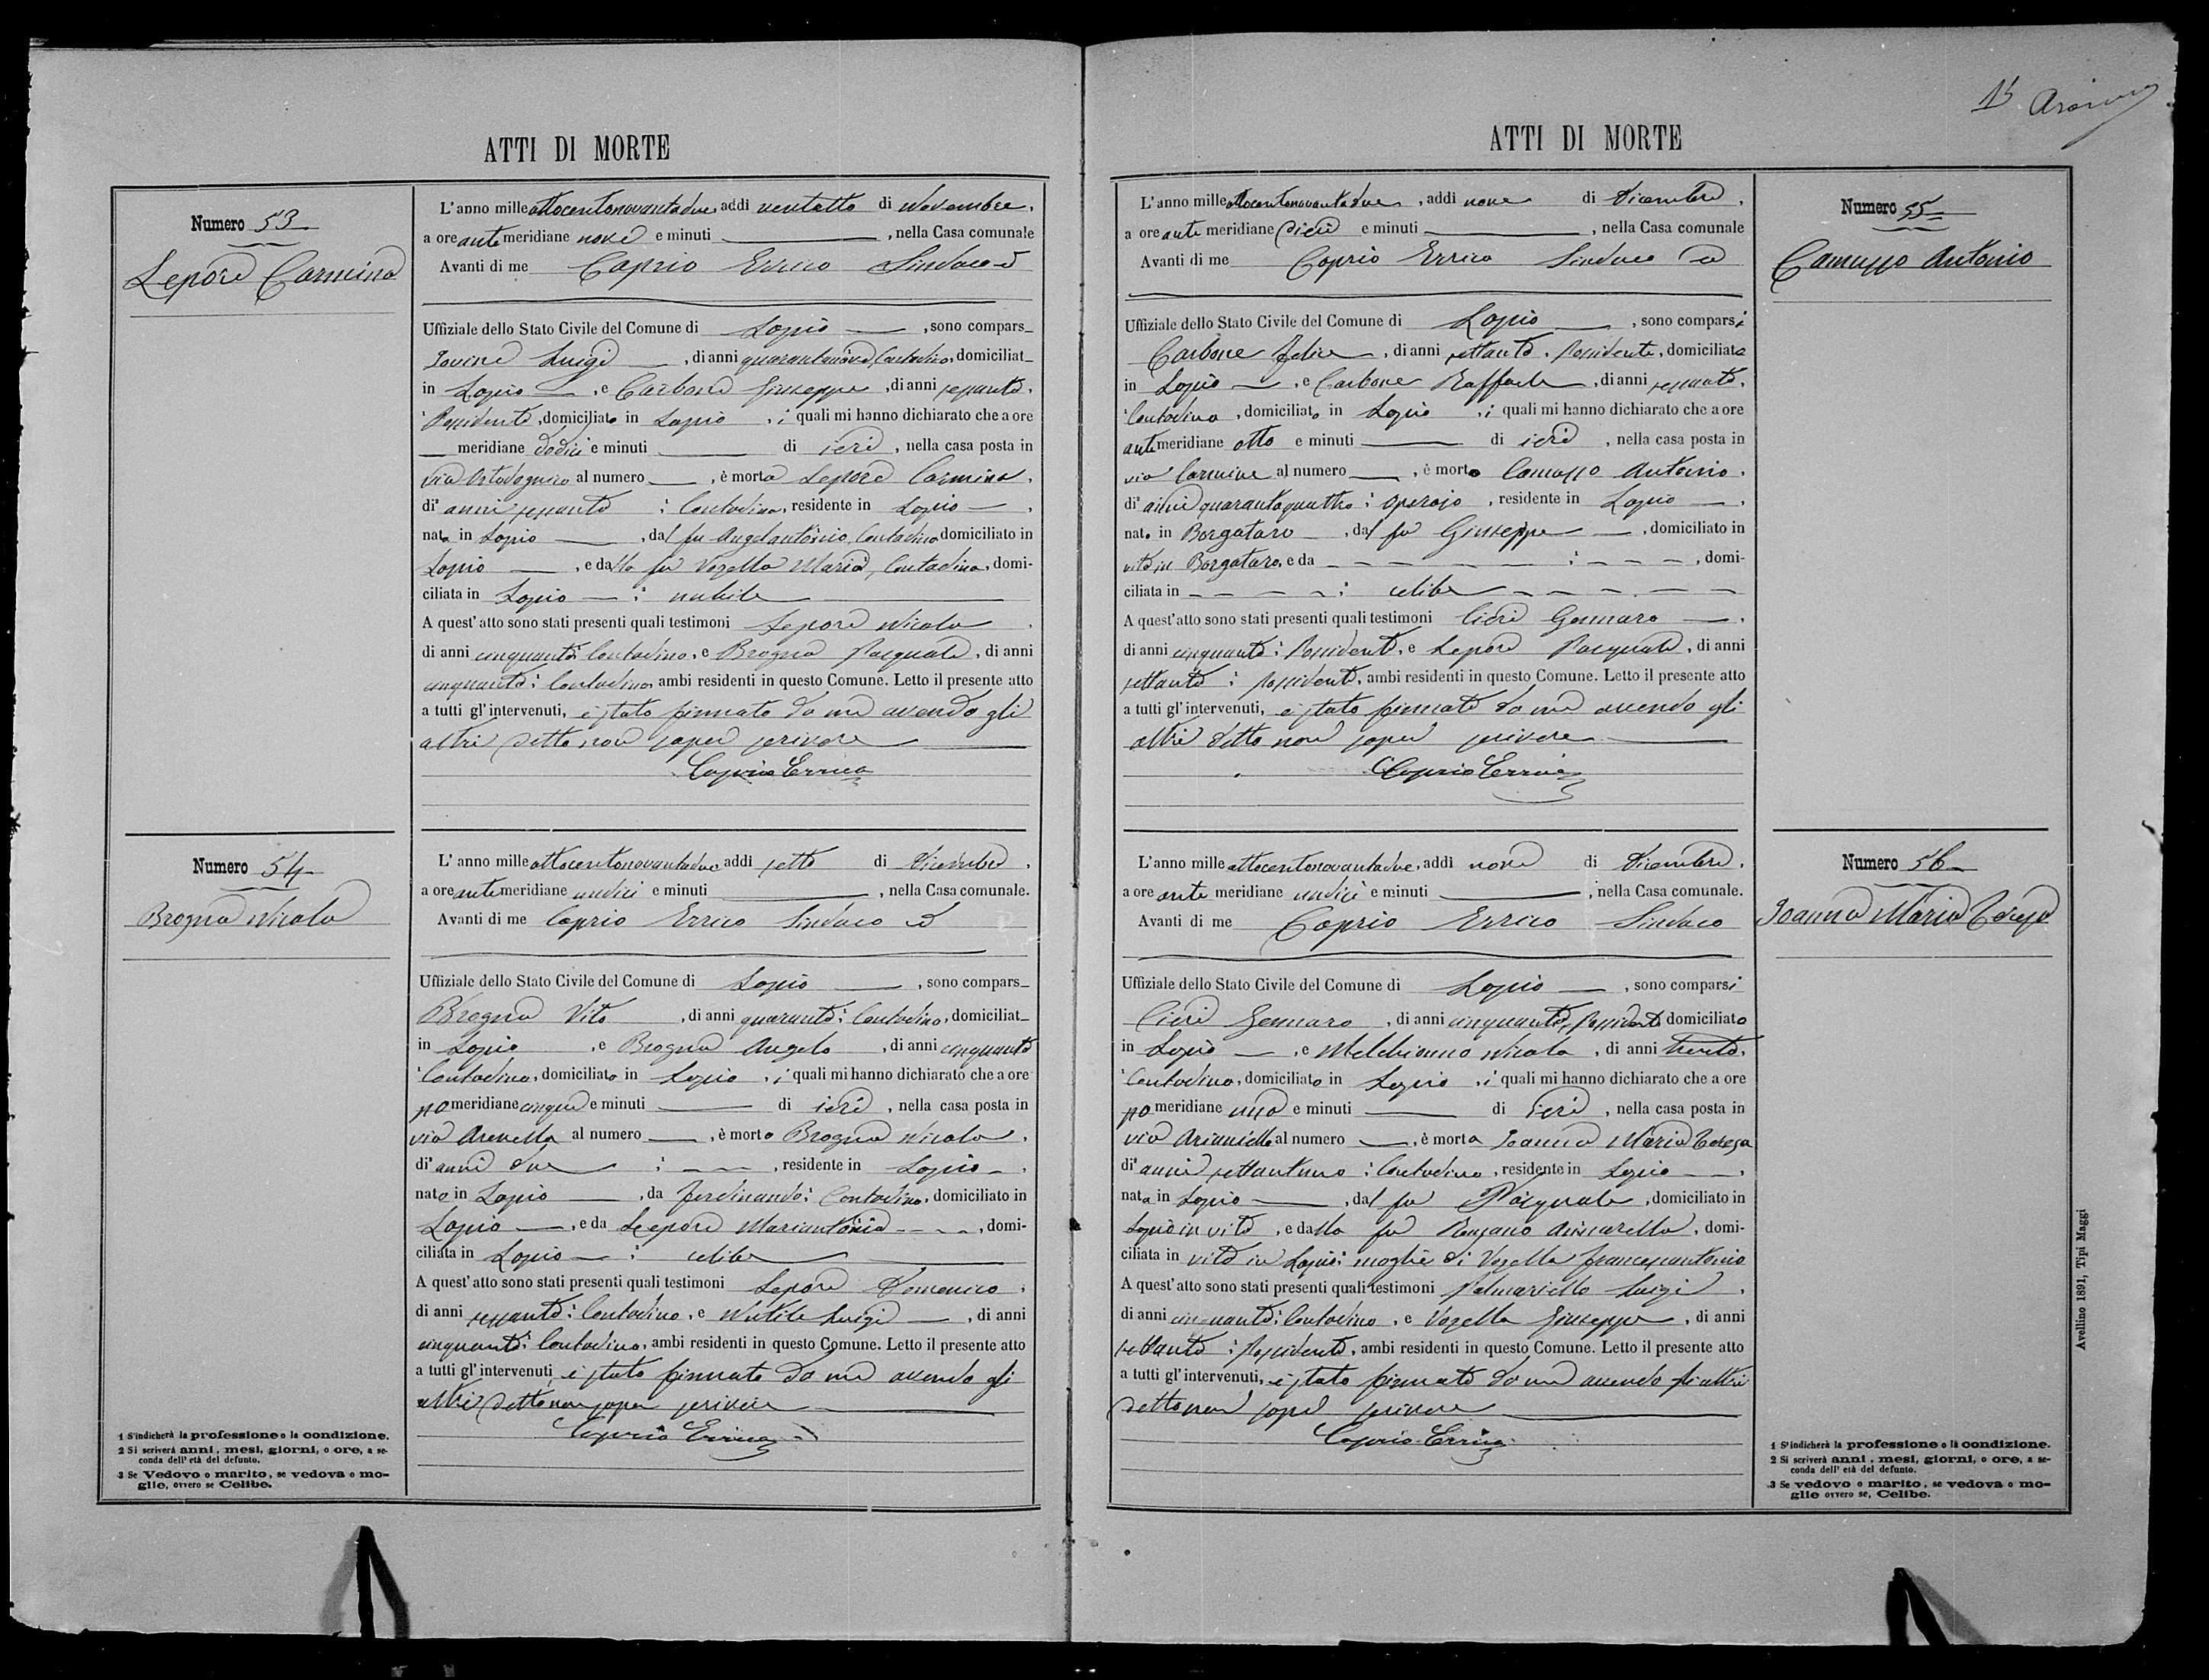 ATTI DI MORTE
Numero 53
Lepore Carmina
L'anno milleottocentonovantadue, addì ventotto di Novembre,
a ore antemeridiane nove e minuti, nella Casa comunale
Avanti di me Caprio Errico Sindaco
Uffiziale dello Stato Civile del Comune di Lapio, sono compars
Iovine Luigi, di anni quarantanove, Contadino, domiciliat
in Lapio, e Carbone Giuseppe, di anni sessanta,
Possidente, domiciliato in Lapio, i quali mi hanno dichiarato che a ore
meridiane dodici e minuti di ieri, nella casa posta in
via al numero, è morta Lepore Carmina,
di anni sessanta; Contadina, residente in Lapio,
nata in Lapio, dal fu Angelantonio, Contadino domiciliato in
Lapio, e dalla fu Vozella Maria, Contadina, domi-
ciliata in Lapio; nubile
A quest'atto sono stati presenti quali testimoni Lepore Nicola,
di anni cinquanta; Contadino, e Brogna Pasquale, di anni
cinquanta; Contadino, ambi residenti in questo Comune. Letto il presente atto
a tutti gl'intervenuti, è stato firmato da me avendo gli
altri detto non saper scrivere
Caprio Errico
Numero 54
Brogna Nicola
L'anno milleottocentonovantadue addì sette di Dicembre,
a ore antemeridiane undici e minuti, nella Casa comunale.
Avanti di me Caprio Errico Sindaco
Uffiziale dello Stato Civile del Comune di Lapio, sono compars
Brogna Vito, di anni quaranta; Contadino, domiciliat
in Lapio, e Brogna Angelo, di anni cinquanta
Contadino, domiciliato in Lapio, i quali mi hanno dichiarato che a ore
pomeridiane cinque e minuti di ieri, nella casa posta in
via Arenella al numero, è morto Brogna Nicola,
di anni due; residente in Lapio,
nato in Lapio, da Ferdinando; Contadino, domiciliato in
Lapio, e da Lepore Mariantonia, domi-
ciliata in Lapio; celibe
A quest'atto sono stati presenti quali testimoni Lepore Domenico,
di anni sessanta; Contadino, e Nutile Luigi, di anni
cinquanta; Contadino, ambi residenti in questo Comune. Letto il presente atto
a tutti gl'intervenuti, è stato firmato da me avendo gli
altri detto non saper scrivere
Caprio Errico
1 S'indicherà la professione o la condizione.
2 Si scriverà anni, mesi, giorni, o ore, a se-
conda dell'età del defunto.
3 Se Vedovo o marito, se vedova o mo-
glie, ovvero se Celibe.
15
ATTI DI MORTE
L'anno milleottocentonovantadue, addì nove di Dicembre,
a ore antemeridiane dieci e minuti, nella Casa comunale
Avanti di me Caprio Errico Sindaco
Uffiziale dello Stato Civile del Comune di Lapio, sono comparsi
Carbone Felice, di anni settanta, Possidente, domiciliato
in Lapio, e Carbone Raffaele, di anni sessanta,
Contadino, domiciliato in Lapio, i quali mi hanno dichiarato che a ore
antemeridiane otto e minuti di ieri, nella casa posta in
via Carmine al numero, è morto Camusso Antonio,
di anni quarantaquattro; operaio, residente in Lapio,
nato in Borgataro, dal fu Giuseppe, domiciliato in
vita in Borgataro, e da ; , domi-
ciliata in ; celibe
A quest'atto sono stati presenti quali testimoni Cieri Gennaro,
di anni cinquanta; Possidente, e Lepore Pasquale, di anni
settanta; Possidente, ambi residenti in questo Comune. Letto il presente atto
a tutti gl'intervenuti, è stato firmato da me avendo gli
altri detto non saper scrivere
Caprio Errico
Numero 55
Camusso Antonio
L'anno milleottocentonovantadue, addì nove di Dicembre,
a ore antemeridiane undici e minuti, nella Casa comunale.
Avanti di me Caprio Errico Sindaco
Uffiziale dello Stato Civile del Comune di Lapio, sono comparsi
Cieri Gennaro, di anni cinquanta, Possidente domiciliato
in Lapio, e Melchionno Nicola, di anni trenta,
Contadino, domiciliato in Lapio, i quali mi hanno dichiarato che a ore
pomeridiane una e minuti di ieri, nella casa posta in
via Arianiello al numero, è morta Ioanna Maria Teresa
di anni settantuno; Contadina, residente in Lapio,
nata in Lapio, dal fu Pasquale, domiciliato in
Lapio in vita, e dalla fu, domi-
ciliata in vita in Lapio; moglie di Vozella Francescantonio
A quest'atto sono stati presenti quali testimoni Palmariello Luigi,
di anni cinquanta; Contadino, e Vozella Giuseppe, di anni
settanta; Possidente, ambi residenti in questo Comune. Letto il presente atto
a tutti gl'intervenuti, è stato firmato da me avendo gli altri
detto non saper scrivere
Caprio Errico
Numero 56
Ioanna Maria Teresa
1 S'indicherà la professione o la condizione.
2 Si scriverà anni, mesi, giorni, o ore, a se-
conda dell'età del defunto.
3 Se vedovo o marito, se vedova o mo-
glie ovvero se, Celibe.
Avellino 1891, Tipi Maggi